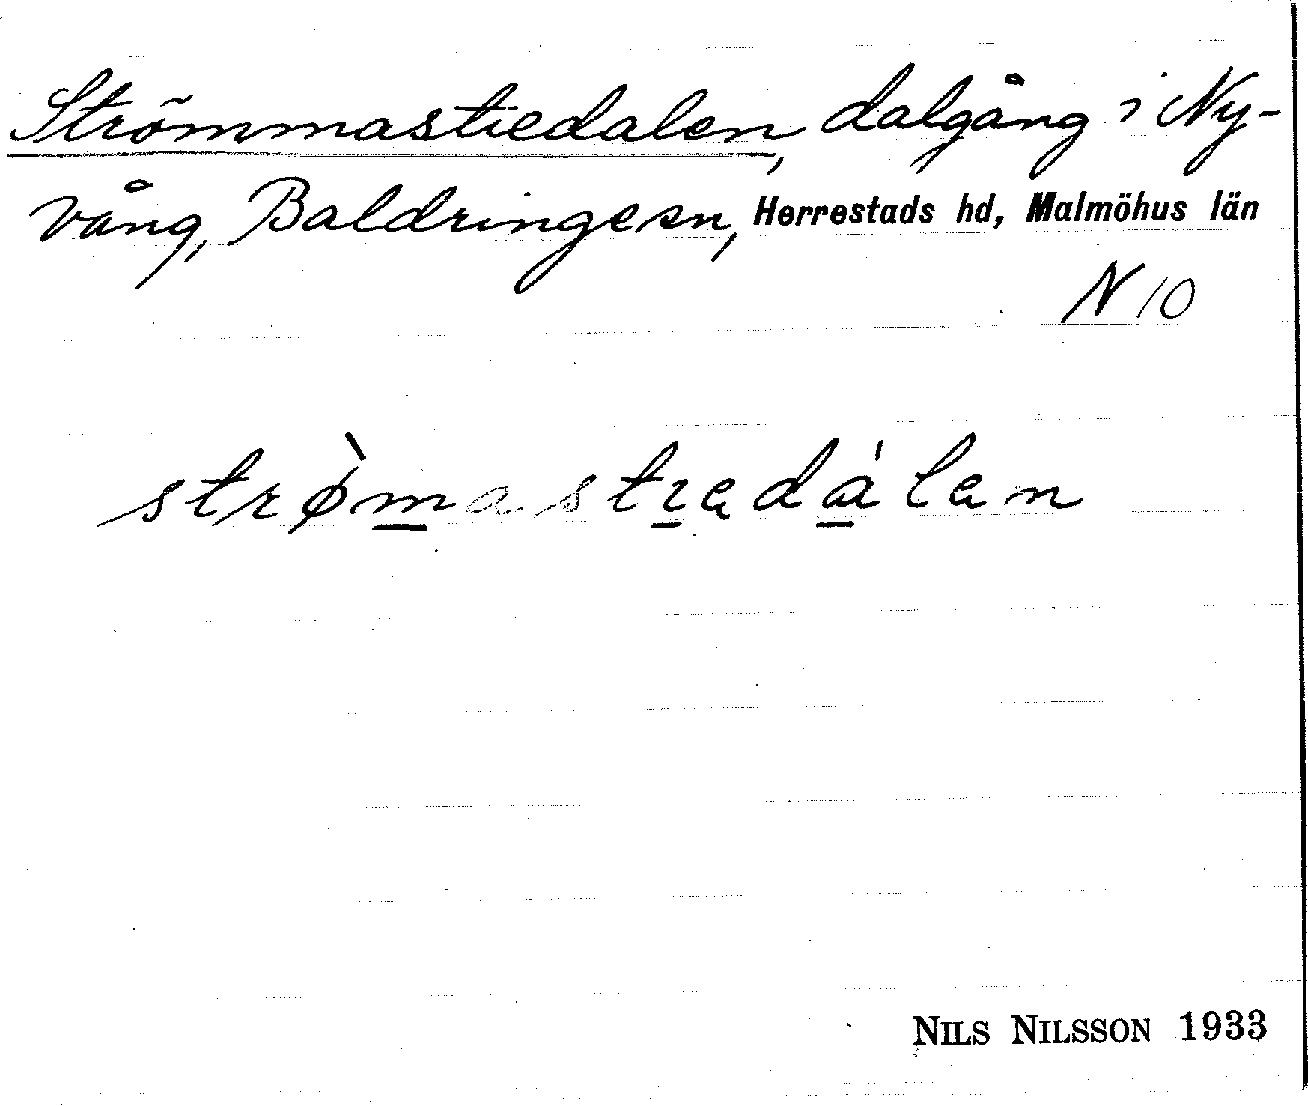 Strömmastiedalen, dalgång i Ny-
vång, Baldringe sn, Herrestads hd, Malmöhus län
N 10
strø̀mastıędálęn
NILS NILSSON 1933